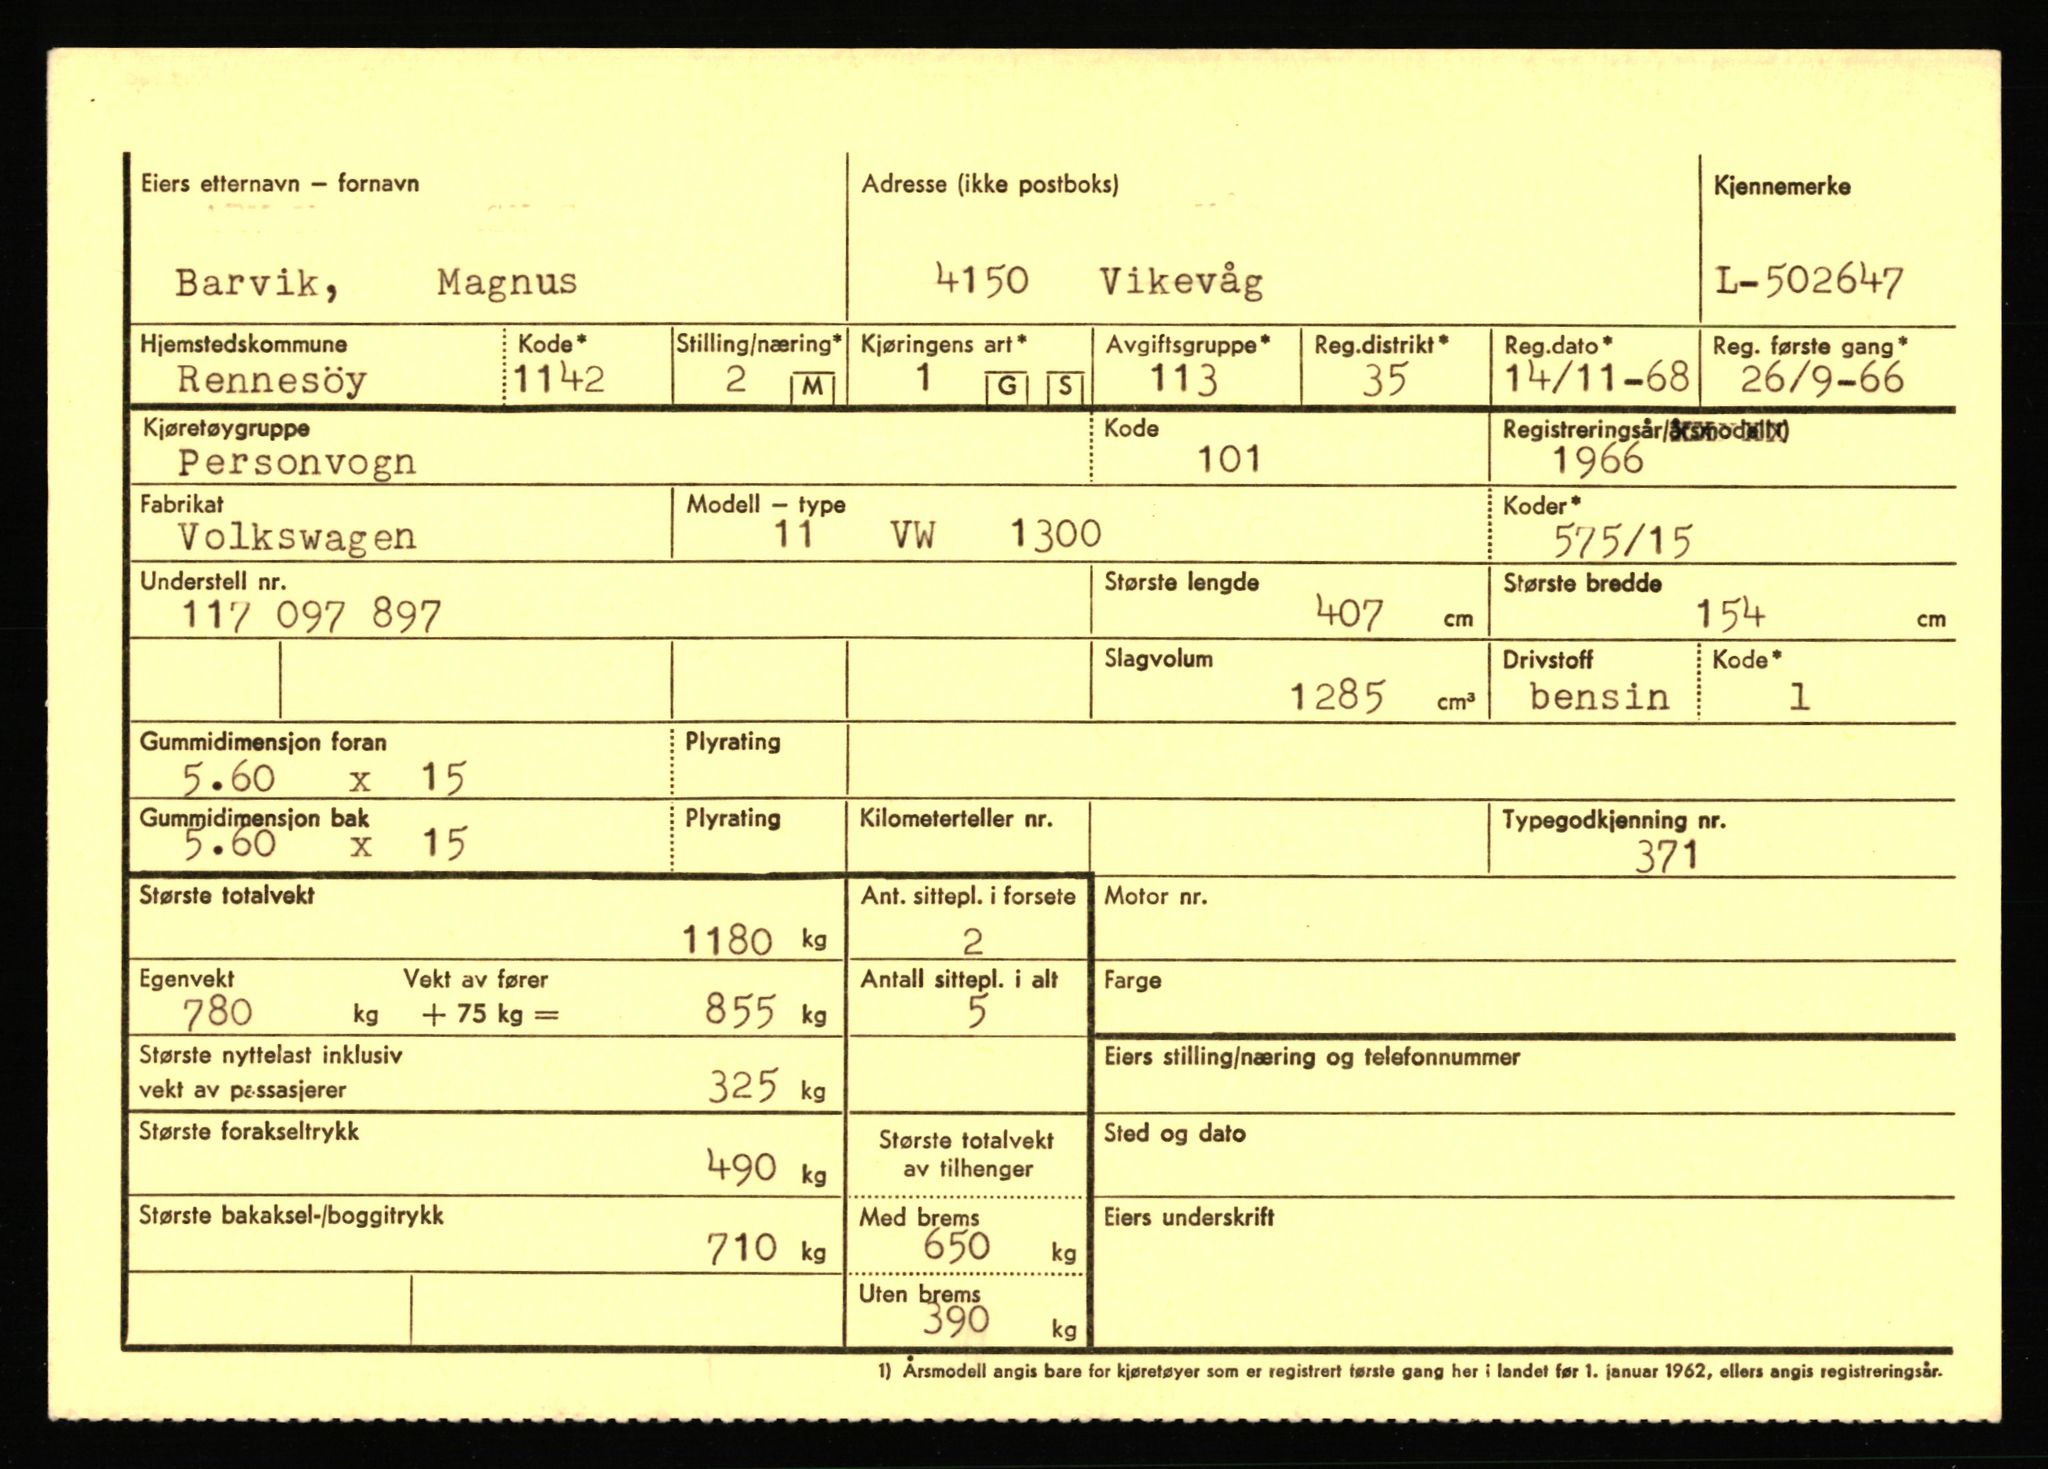 Eiers etternavn – fornavn Adresse (ikke postboks) Kjennemerke
Barvik, Magnus 4150 Vikevåg L-502647
Hjemstedskommune Kode* Stilling/næring* Kjøringens art* Avgiftsgruppe* Reg.distrikt* Reg.dato* Reg. første gang*
Rennesöy 1142 2 M 1 G S 113 35 14/11-68 26/9-66
Kjøretøygruppe Kode Registreringsår/årsmodell1)
Personvogn 101 1966
Fabrikat Modell – type Koder*
Volkswagen 11 VW 1300 575/15
Understell nr. Største lengde Største bredde
117 097 897 407 cm 154 cm
Slagvolum Drivstoff Kode*
1285 cm³ bensin 1
Gummidimensjon foran Plyrating
5.60 x 15
Gummidimensjon bak Plyrating Kilometerteller nr. Typegodkjenning nr.
5.60 x 15 371
Største totalvekt Ant. sittepl. i forsete Motor nr.
1180 kg 2
Egenvekt Vekt av fører Antall sittepl. i alt Farge
780 kg + 75 kg = 855 kg 5
Største nyttelast inklusiv Eiers stilling/næring og telefonnummer
vekt av passasjerer 325 kg
Største forakseltrykk Største totalvekt Sted og dato
490 kg av tilhenger
Største bakaksel-/boggitrykk Med brems Eiers underskrift
710 kg 650 kg
Uten brems
390 kg
1) Årsmodell angis bare for kjøretøyer som er registrert første gang her i landet før 1. januar 1962, ellers angis registreringsår.